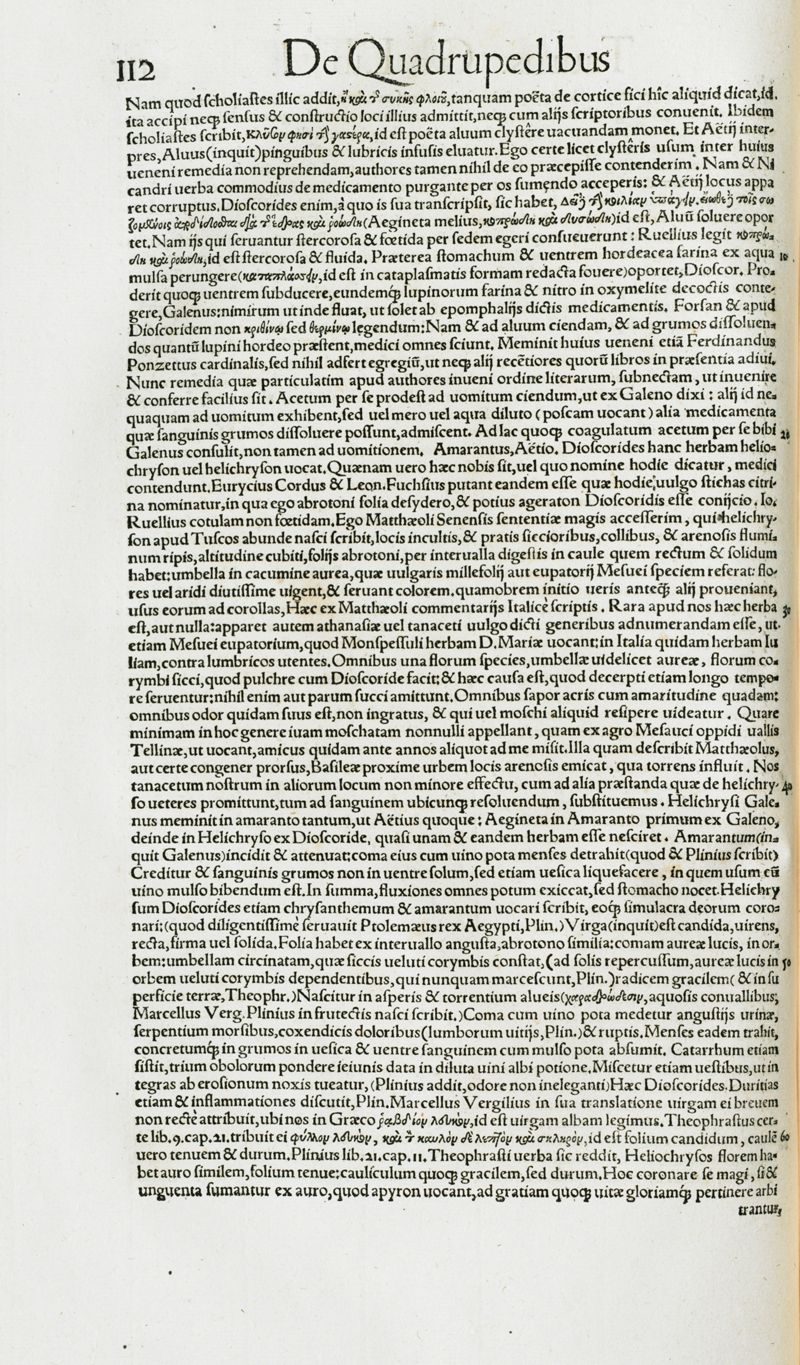 112 De Quadrupedibus
Nam quod ſcholiaſtes illic addit, ἢ καὶ τ͂ συκῆς φλοιῶ, tanquam poëta de cortice fici hîc aliquid dicat, id.
ita accipi neqꝫ ſenſus & conſtructio loci illius admittit, neqꝫ cum alijs ſcriptoribus conuenit. Ibidem
ſcholiaſtes ſcribit, id eſt poëta aluum clyſtêre uacuandam monet. Et Aëtij inter-
pres, Aluus (inquit) pinguibus & lubricis infuſis eluatur. Ego certe licet clyſteris uſum inter huius
ueneni remedia non reprehendam, authores tamen nihil de eo præcepiſſe contenderim. Nam & Ni
candri uerba commodius de medicamento purgante per os ſumendo acceperis: & Aëtij locus appa
ret corruptus. Dioſcorides enim, à quo is ſua tranſcripſit, ſic habet,
(Aegineta melius, ) id eſt, Aluū ſoluere opor
tet. Nam ijs qui ſeruantur ſtercoroſa & fœtida per ſedem egeri conſueuerunt: Ruellius legit κοπρώ-
id eſt ſtercoroſa & fluida. Præterea ſtomachum & uentrem hordeacea farina ex aqua 10
mulſa perungere (καταπλάσσειν, id eſt in cataplaſmatis formam redacta fouere) oportet, Dioſcor. Pro-
derit quoqꝫ uentrem ſubducere, eundemqꝫ lupinorum farina & nitro in oxymelite decoctis conte-
gere, Galenus: nimirum ut inde fluat, ut ſolet ab epomphalijs dictis medicamentis. Forſan & apud
Dioſcoridem non κριθίνῳ ſed θερμίνῳ legendum: Nam & ad aluum ciendam, & ad grumos diſſoluen-
dos quantū lupini hordeo præſtent, medici omnes ſciunt. Meminit huius ueneni etiā Ferdinandus
Ponzettus cardinalis, ſed nihil adfert egregiū, ut neqꝫ alij recētiores quorū libros in præſentia adiui.
Nunc remedia quæ particulatim apud authores inueni ordine literarum, ſubnectam, ut inuenire
& conferre facilius ſit. Acetum per ſe prodeſt ad uomitum ciendum, ut ex Galeno dixi: alij id ne-
quaquam ad uomitum exhibent, ſed uel mero uel aqua diluto (poſcam uocant) alia medicamenta
quæ ſanguinis grumos diſſoluere poſſunt, admiſcent. Ad lac quoqꝫ coagulatum acetum per ſe bibi 20
Galenus conſulit, non tamen ad uomitionem. Amarantus, Aëtio. Dioſcorides hanc herbam helio-
chryſon uel helichryſon uocat. Quænam uero hæc nobis ſit, uel quo nomine hodie dicatur, medici
contendunt. Eurycius Cordus & Leon. Fuchſius putant eandem eſſe quæ hodie uulgo ſtichas citri-
na nominatur, in qua ego abrotoni folia deſydero, & potius ageraton Dioſcoridis eſſe conijcio. Io.
Ruellius cotulam non fœtidam. Ego Matthæoli Senenſis ſententiæ magis acceſſerim, qui helichry-
ſon apud Tuſcos abunde naſci ſcribit, locis incultis, & pratis ſiccioribus, collibus, & arenoſis flumi-
num ripis, altitudine cubiti, folijs abrotoni, per interualla digeſtis in caule quem rectum & ſolidum
habet: umbella in cacumine aurea, quæ uulgaris millefolij aut eupatorij Meſuei ſpeciem referat: flo-
res uel aridi diutiſſime uigent, & ſeruant colorem. quamobrem initio ueris anteqꝫ alij proueniant,
uſus eorum ad corollas, Hæc ex Matthæoli commentarijs Italicè ſcriptis. Rara apud nos hæc herba 30
eſt, aut nulla: apparet autem athanaſiæ uel tanaceti uulgo dicti generibus adnumerandam eſſe, ut
etiam Meſuei eupatorium, quod Monſpeſſuli herbam D. Mariæ uocant: in Italia quidam herbam Iu
liam, contra lumbricos utentes. Omnibus una florum ſpecies, umbellæ uidelicet aureæ, florum co-
rymbi ſicci, quod pulchre cum Dioſcoride facit: & hæc cauſa eſt, quod decerpti etiam longo tempo-
re ſeruentur: nihil enim aut parum ſucci amittunt. Omnibus ſapor acris cum amaritudine quadam:
omnibus odor quidam ſuus eſt, non ingratus, & qui uel moſchi aliquid reſipere uideatur. Quare
minimam in hoc genere iuam moſchatam nonnulli appellant, quam ex agro Meſauci oppidi uallis
Tellinæ, ut uocant, amicus quidam ante annos aliquot ad me miſit. Illa quam deſcribit Matthæolus,
aut certe congener prorſus, Baſileæ proxime urbem locis arenoſis emicat, qua torrens influit. Nos
tanacetum noſtrum in aliorum locum non minore effectu, cum ad alia præſtanda quæ de helichry- 40
ſo ueteres promittunt, tum ad ſanguinem ubicunqꝫ reſoluendum, ſubſtituemus. Helichryſi Gale-
nus meminit in amaranto tantum, ut Aëtius quoque: Aegineta in Amaranto primum ex Galeno,
deinde in Helichryſo ex Dioſcoride, quaſi unam & eandem herbam eſſe neſciret. Amarantum (in-
quit Galenus) incidit & attenuat: coma eius cum uino pota menſes detrahit (quod & Plinius ſcribit)
Creditur & ſanguinis grumos non in uentre ſolum, ſed etiam ueſica liquefacere, in quem uſum cū
uino mulſo bibendum eſt. In ſumma, fluxiones omnes potum exiccat, ſed ſtomacho nocet. Helichry
ſum Dioſcorides etiam chryſanthemum & amarantum uocari ſcribit, eoqꝫ ſimulacra deorum coro-
nari: (quod diligentiſſimè ſeruauit Ptolemæus rex Aegypti, Plin.) Virga (inquit) eſt candida, uirens,
recta, firma uel ſolida. Folia habet ex interuallo anguſta, abrotono ſimilia: comam aureæ lucis, in or-
bem: umbellam circinatam, quæ ſiccis ueluti corymbis conſtat, (ad ſolis repercuſſum, aureæ lucis in 50
orbem ueluti corymbis dependentibus, qui nunquam marceſcunt, Plin.) radicem gracilem (& in ſu
perficie terræ, Theophr.) Naſcitur in aſperis & torrentium alueis (χαραδρώδεσιν, aquoſis conuallibus,
Marcellus Verg. Plinius in frutectis naſci ſcribit.) Coma cum uino pota medetur anguſtijs urinæ,
ſerpentium morſibus, coxendicis doloribus (lumborum uitijs, Plin.) & ruptis. Menſes eadem trahit,
concretumqꝫ in grumos in ueſica & uentre ſanguinem cum mulſo pota abſumit. Catarrhum etiam
ſiſtit, trium obolorum pondere ieiunis data in diluta uini albi potione. Miſcetur etiam ueſtibus, ut in
tegras ab eroſionum noxis tueatur, (Plinius addit, odore non ineleganti) Hæc Dioſcorides. Duritias
etiam & inflammationes diſcutit, Plin. Marcellus Vergilius in ſua translatione uirgam ei breuem
non rectè attribuit, ubi nos in Græco ῥαβδίον λευκὸν, id eſt uirgam albam legimus. Theophraſtus cer-
te lib. 9. cap. 21. tribuit ei φύλλον λευκὸν, καὶ τ̀ καυλὸν δὲ λεπτὸν καὶ σκληρὸν, id eſt folium candidum, caulē 60
uero tenuem & durum. Plinius lib. 21. cap. 11. Theophraſti uerba ſic reddit, Heliochryſos florem ha-
bet auro ſimilem, folium tenue: cauliculum quoqꝫ gracilem, ſed durum. Hoc coronare ſe magi, ſi &
unguenta ſumantur ex auro, quod apyron uocant, ad gratiam quoqꝫ uitæ gloriamqꝫ pertinere arbi
trantur,